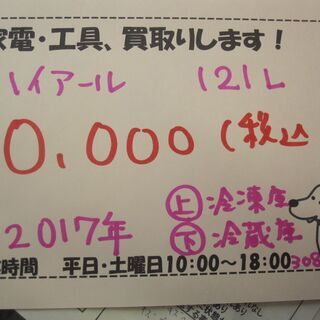 家電・工具、買取りします！
ハイアール 121L
0,000 (税込
2017年
上 冷凍庫
下 冷蔵庫
時間 平日・土曜日10:00～18:00
308